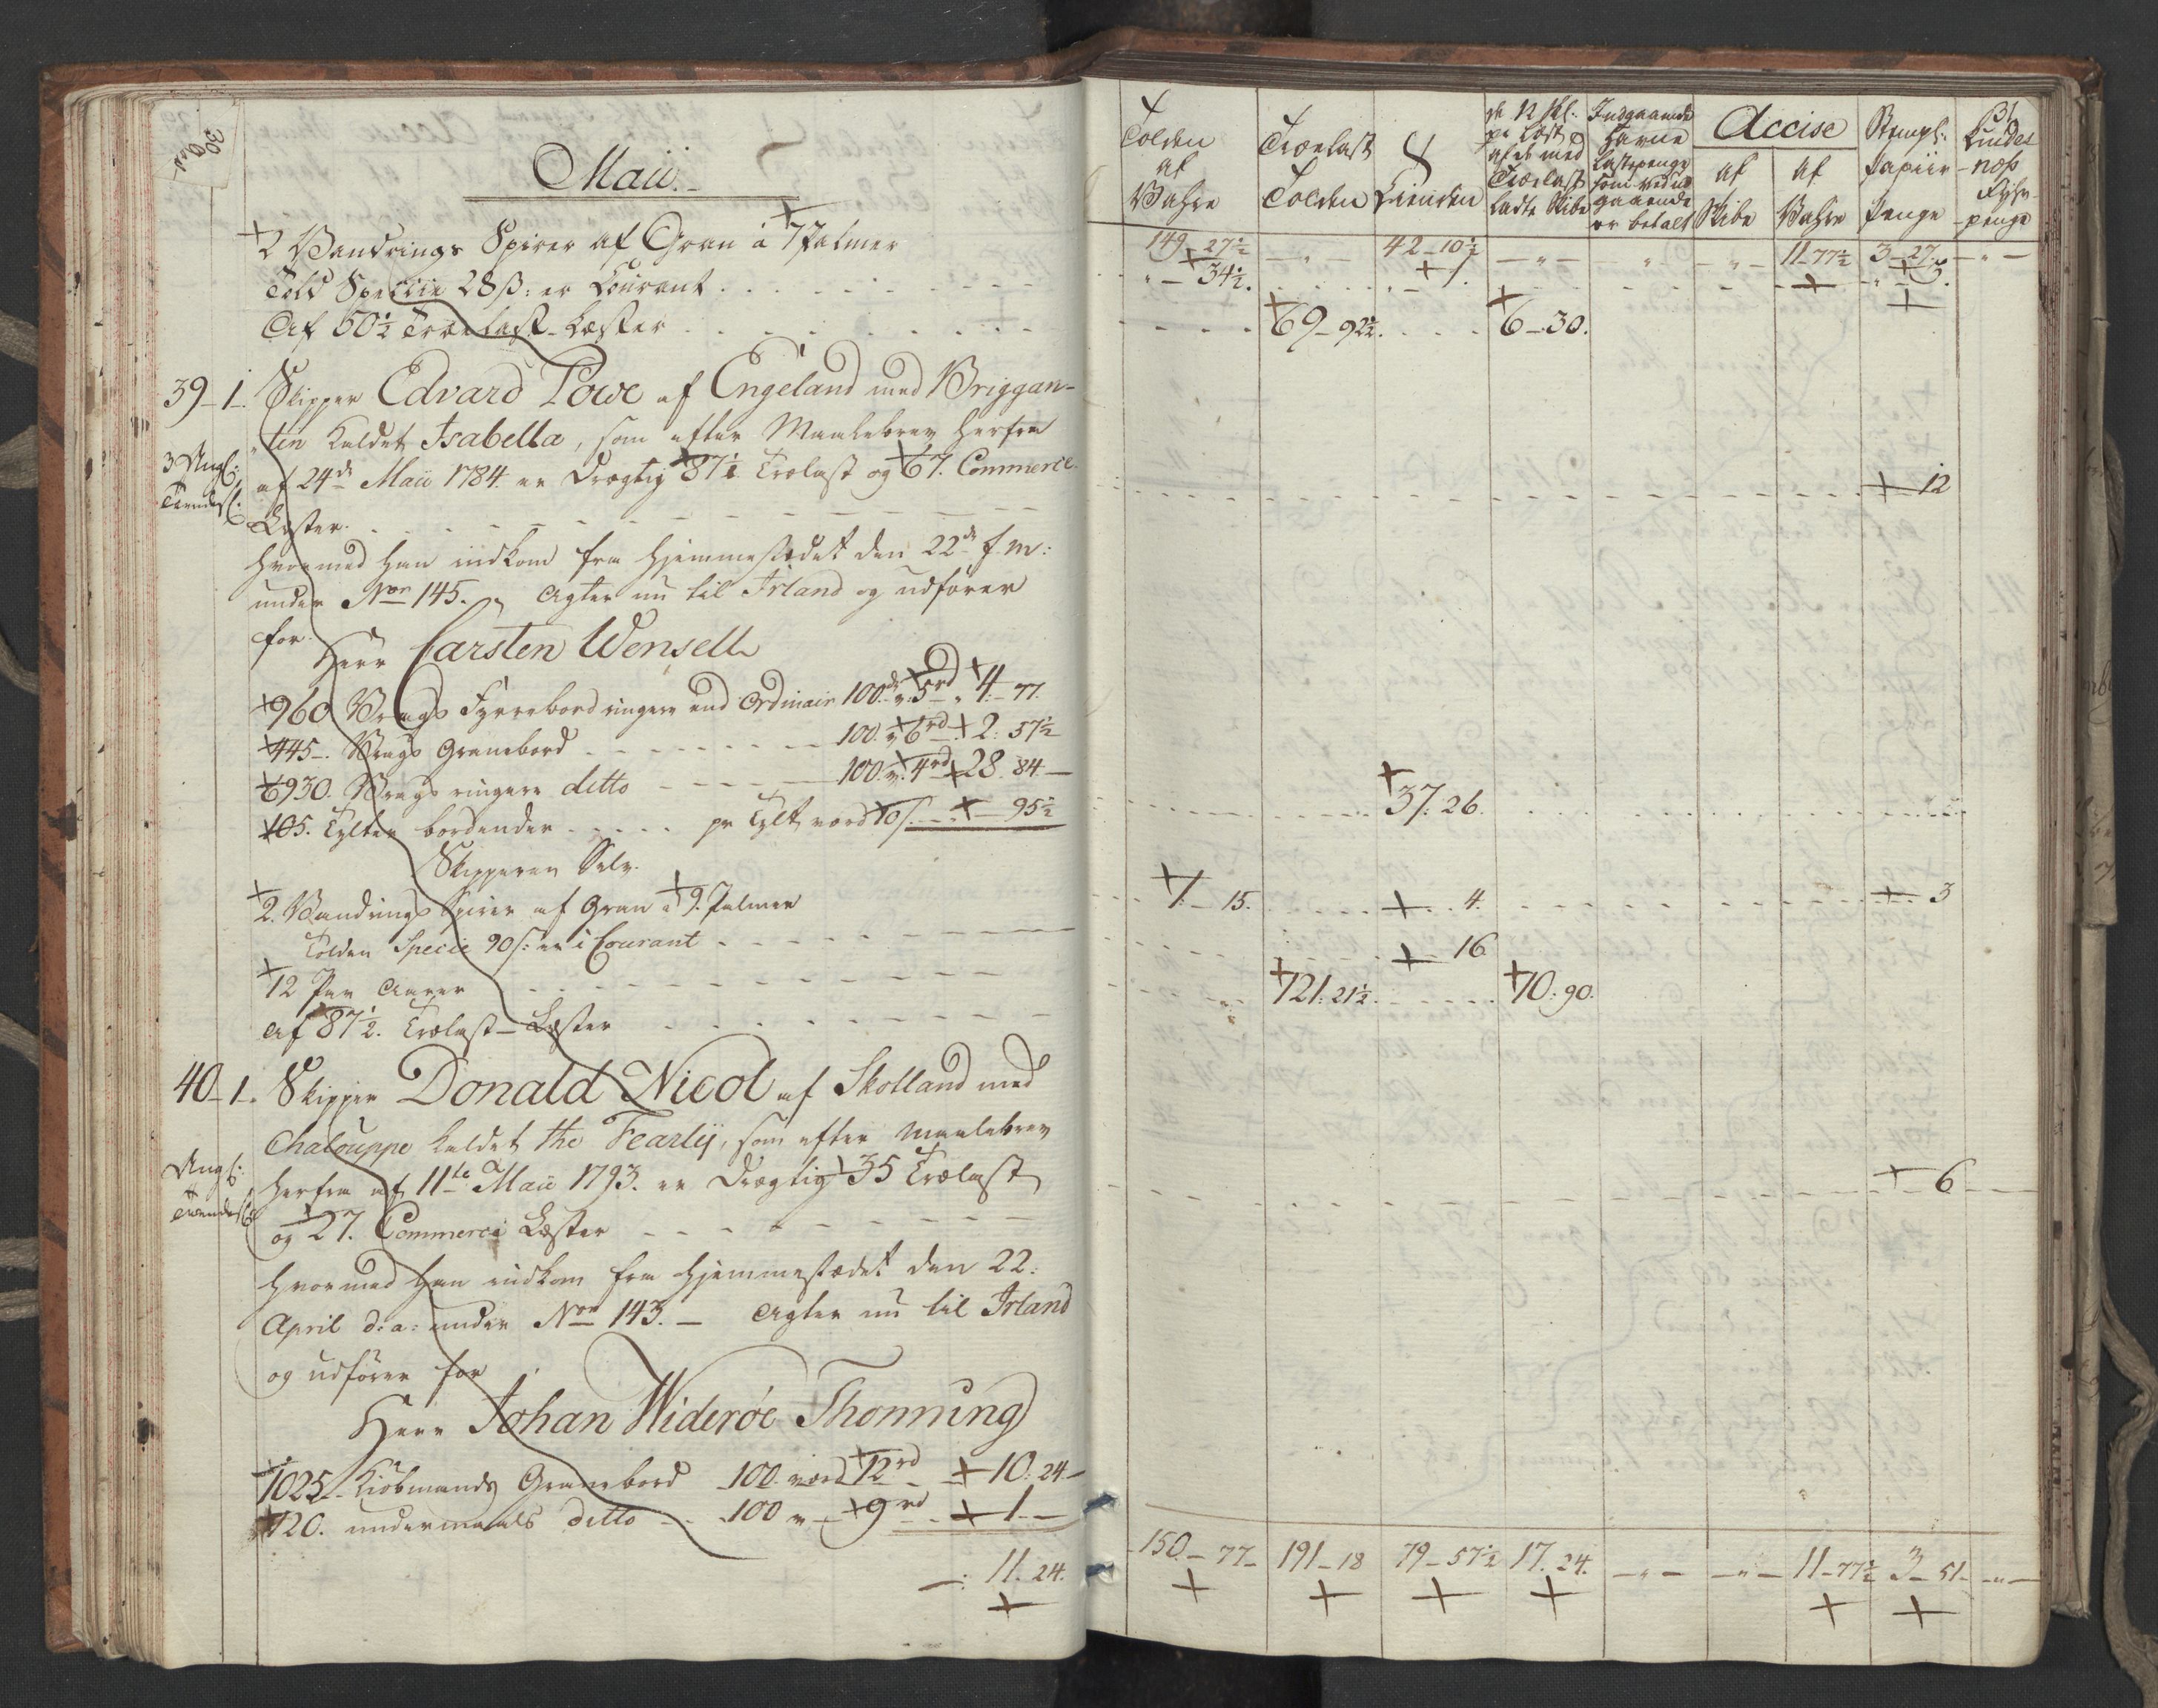 Maii.
2 Vandrings Spirer af Gran à 7 Palmer
Told Specie 28ß: er Courant
Af 50½ Trælast-Læster
39-1- Skipper Edvard Powe af Engeland med Briggan-
tin kaldet Isabella, som efter Maalebrev herfra
3 Angl:
af 24de Maii 1784 er Drægtig 87½ Trælast og 67. Commerce
Læster.
hvormed han indkom fra hjemmestædet den 22de f.m:
under Nor 145. Agter nu til Irland og udfører
for
Herr Carsten Wensell
960 Vrags Fyrrebord ringere end Ordinair 100de v. 5rd 4-77.
445. Vrags Granebord 100. v 6rd 2:57½
6930. Vrags ringere ditto 100. v. 4rd 28.84
105. Tylter bordender pr Tylt værd 10ß 95½
Skipperen Selv.
2. Vandrings Spirer af Gran à 9. Palmer
Tolden Specie 90ß: er i Courant
12 Par Aarer
Af 87½. Trælast-Læster
40-1- Skipper Donald Nicol af Skotland med
Chalouppe kaldet the Fearly, som efter Maalebrev
Angl:
herfra af 11te Maii 1793. er Drægtig 35 Trælast
og 27. Commerce Læster
hvormed han indkom fra hjemmestædet den 22:
April d:a: under Nor 143. Agter nu til Irland
og udfører for
Herr Johan Widerøe Thonning
1025 Kiøbmands Granebord 100 værd 12rd 10.24
120. undermaals ditto 100 v 9rd 1
11.24.
31
Tolden af Vahre
Trælast Tolden
Tienden
de 12 skl: pr Læst af de med Trælast ladte Skibe
Indgaaende havne Lastepenge som ved udgaaende er betalt
Accise
af Skibe
af Vahre
Stempl: Papiir Penge
Lindesnæs Fyhrpenge
149-27½ 42-10½ 11-77½ 3-27
34½. 1. 3.
69-92½. 6-30.
12
37.26.
1.-15. 4. 3
16
121:21½. 10:90.
6
150.-77- 191-18 79-57½ 17.24. 11-77½ 3-51